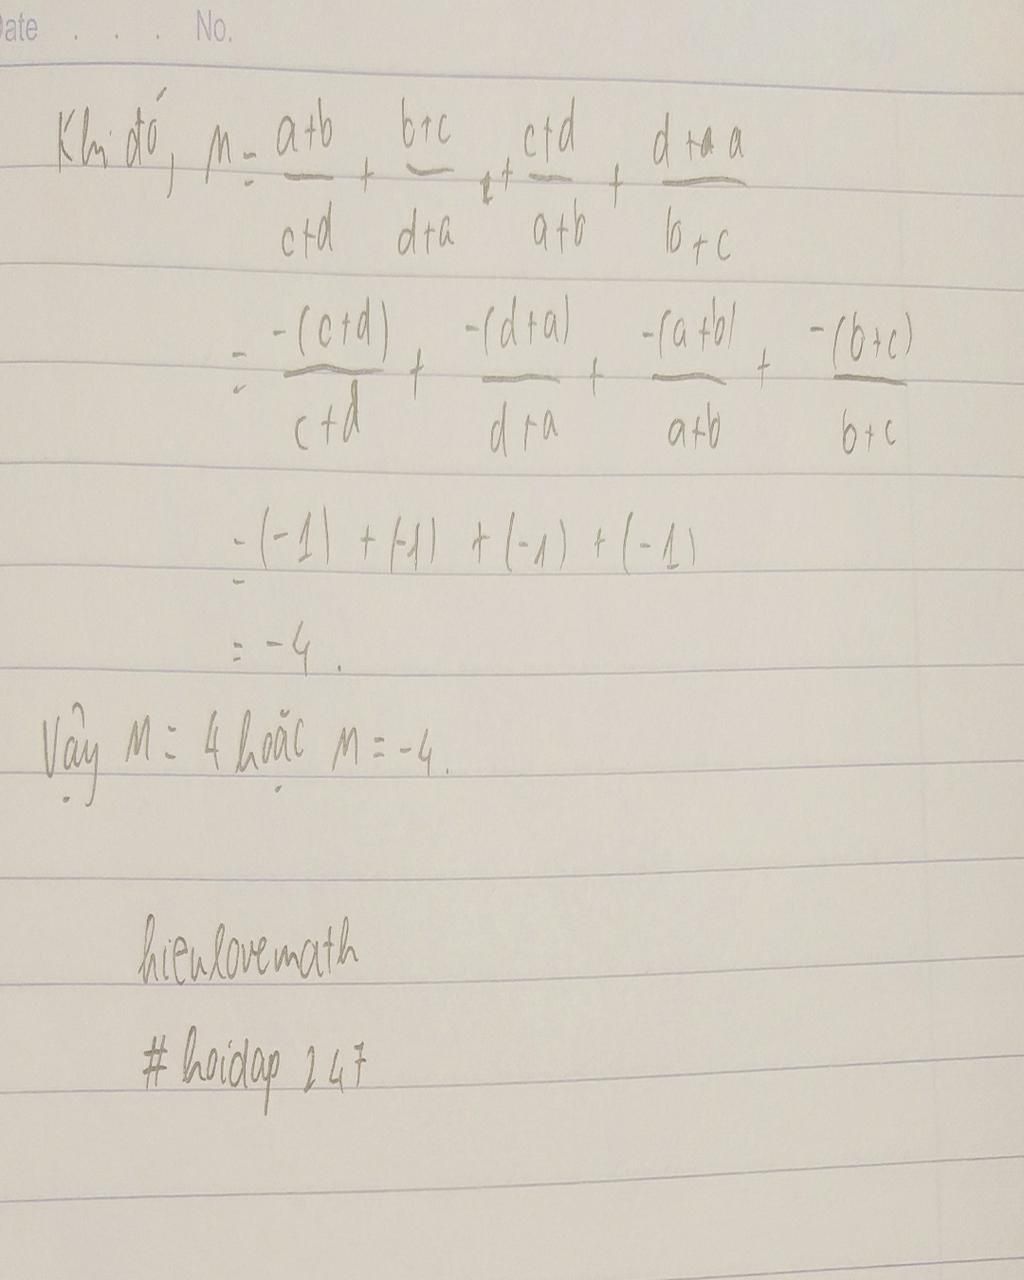 Date . . . No.
Khi đó, M = \frac{a+b}{c+d} + \frac{b+c}{d+a} + \frac{c+d}{a+b} + \frac{d+a}{b+c}
= \frac{-(c+d)}{c+d} + \frac{-(d+a)}{d+a} + \frac{-(a+b)}{a+b} + \frac{-(b+c)}{b+c}
= (-1) + (-1) + (-1) + (-1)
= -4.
Vậy M = 4 hoặc M = -4.
hieulovemath
# hoidap 247